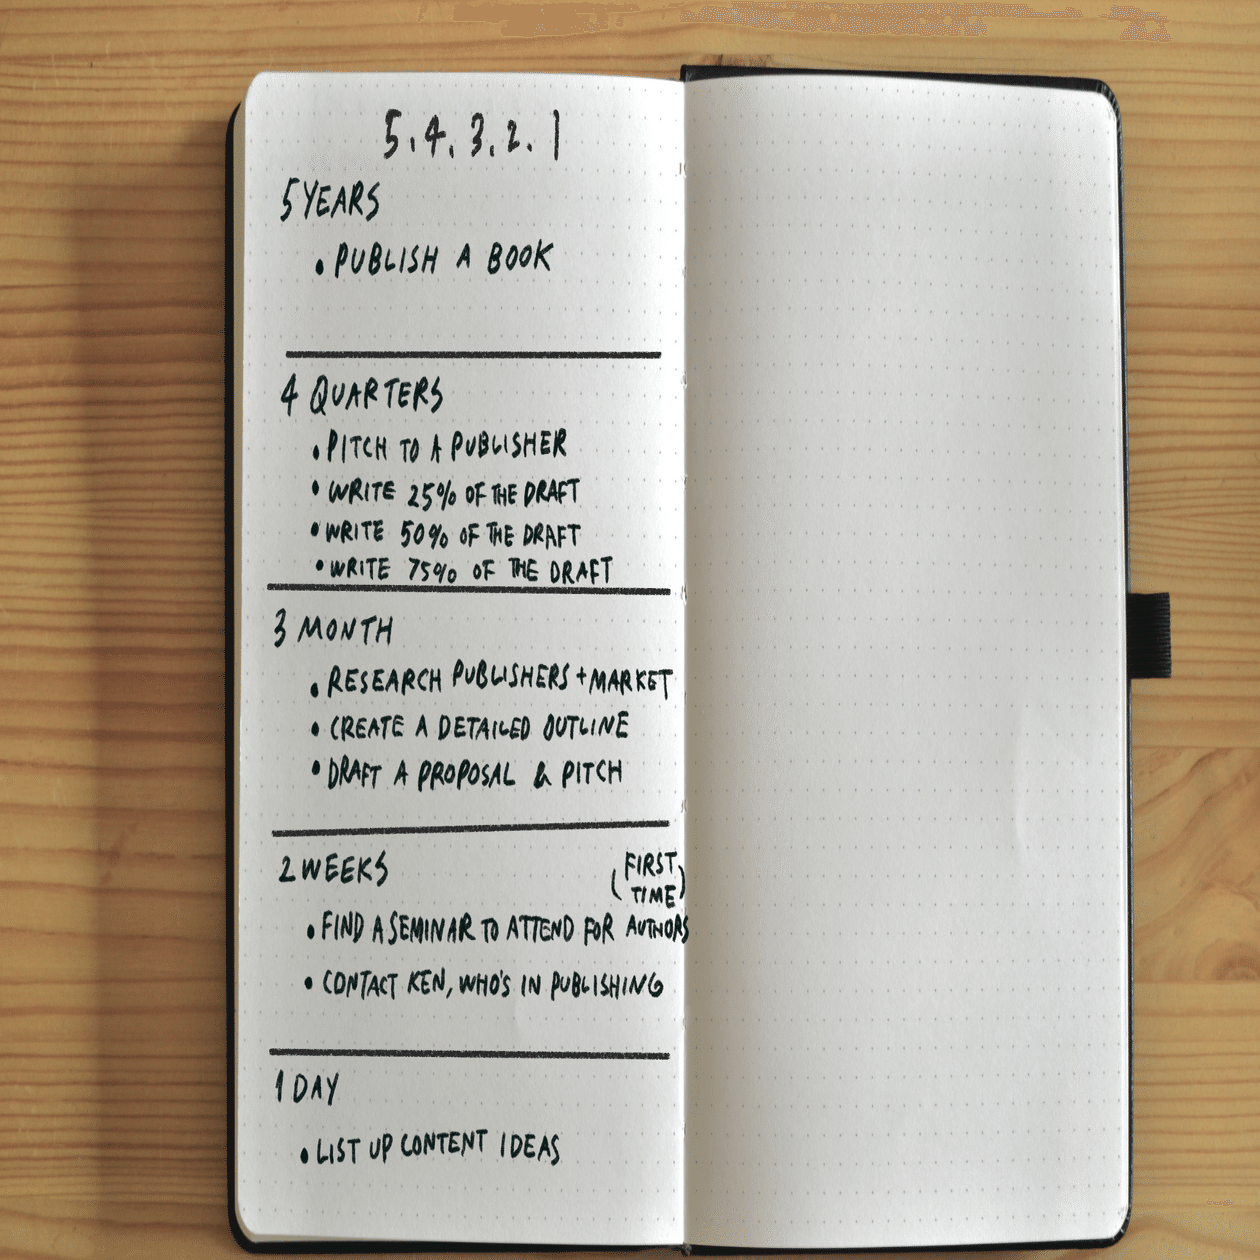 5.4.3.2.1
5 YEARS
• PUBLISH A BOOK
4 QUARTERS
• PITCH TO A PUBLISHER
• WRITE 25% OF THE DRAFT
• WRITE 50% OF THE DRAFT
• WRITE 75% OF THE DRAFT
3 MONTH
• RESEARCH PUBLISHERS + MARKET
• CREATE A DETAILED OUTLINE
• DRAFT A PROPOSAL & PITCH
2 WEEKS
(FIRST
TIME)
• FIND A SEMINAR TO ATTEND FOR AUTHORS
• CONTACT KEN, WHO'S IN PUBLISHING
1 DAY
• LIST UP CONTENT IDEAS